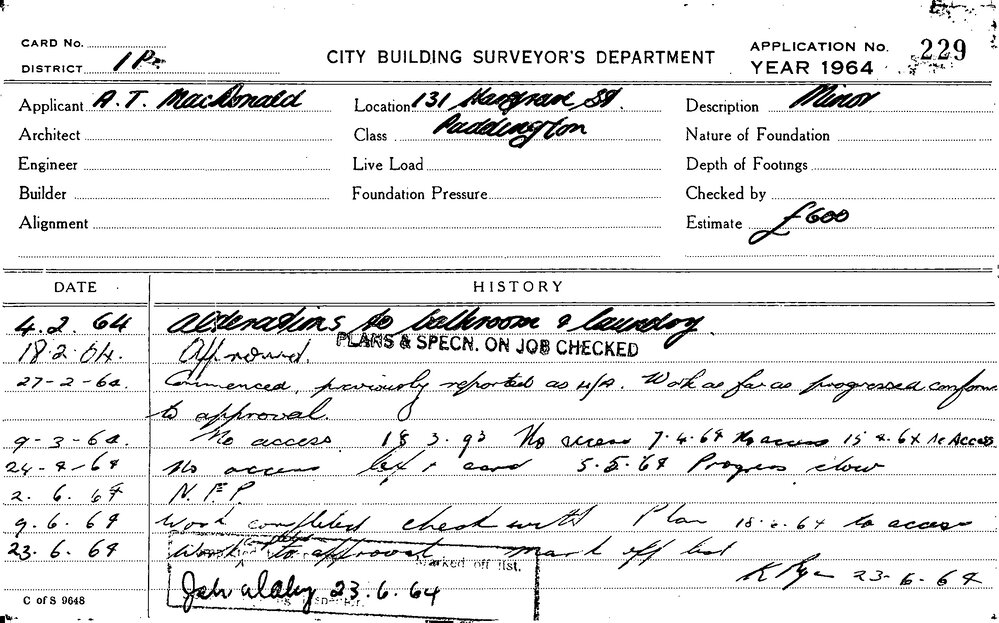 CARD No.
DISTRICT 1 Pn
CITY BUILDING SURVEYOR'S DEPARTMENT
APPLICATION No. 229
YEAR 1964
Applicant A.T. MacDonald Location 131 Hargrave St Description Minor
Architect Class Paddington Nature of Foundation
Engineer Live Load Depth of Footings
Builder Foundation Pressure Checked by
Alignment Estimate £600
DATE HISTORY
4.2.64 Alterations to bathroom & laundry.
18.2.64. Approved. PLANS & SPECN. ON JOB CHECKED
27-2-64. Commenced, previously reported as N/A. Work as far as progressed conforms
to approval.
9-3-64. No access 18 3. No access 7.4.64 No access 15.4.64 No Access
24-4-64 No access left card 5.5.64 Progress slow
2.6.64 N.F.P.
9.6.64 Work completed check with Plan 18.6.64 no access
23.6.64 Work completed to approval mark off list
Marked off list.
K Rye 23-6-64
23.6.64
C of S 9648